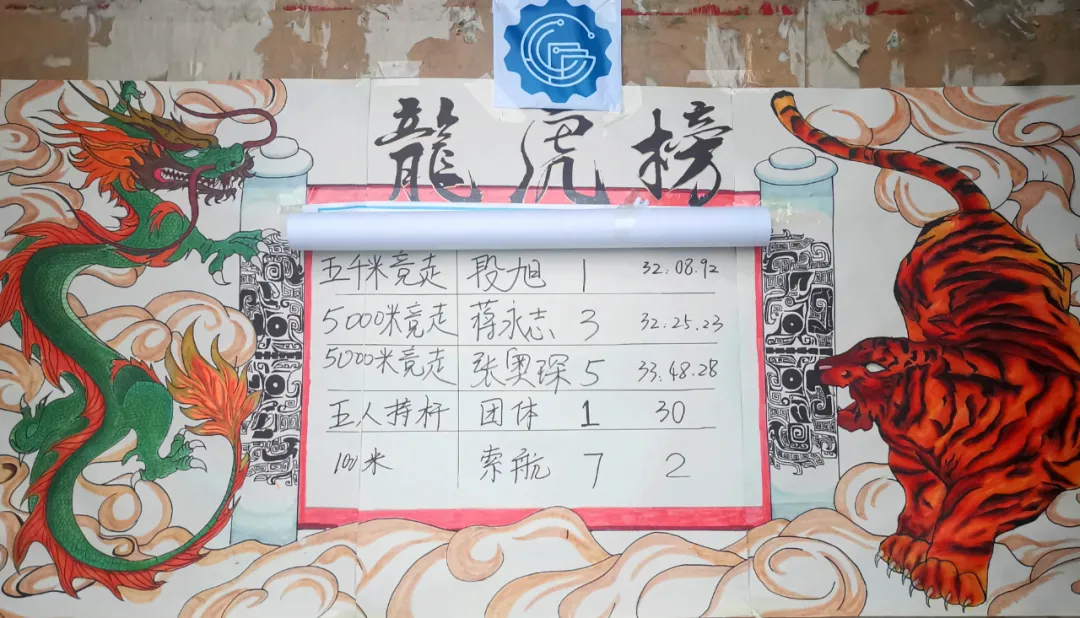 龍虎榜
五千米竟走 段旭 1 32:08.92
5000米竟走 蒋永志 3 32.25.23
5000米竟走 张奥琛 5 33.48.28
五人持杆 团体 1 30
100米 索航 7 2